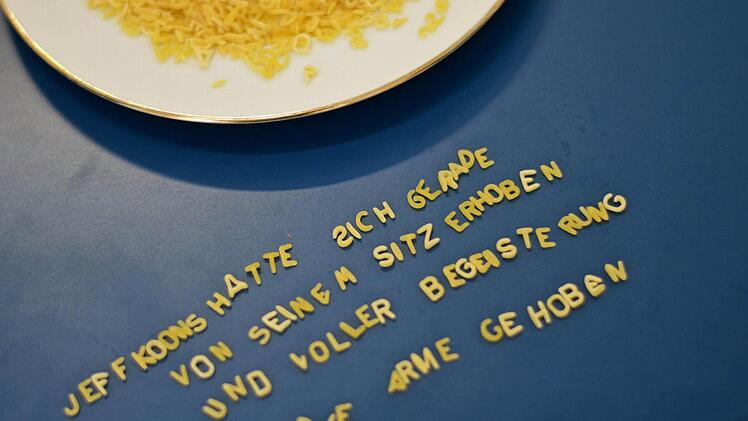 JEFF KOONS HATTE SICH GERADE
VON SEINEM SITZ ERHOBEN
UND VOLLER BEGEISTERUNG
ARME GEHOBEN